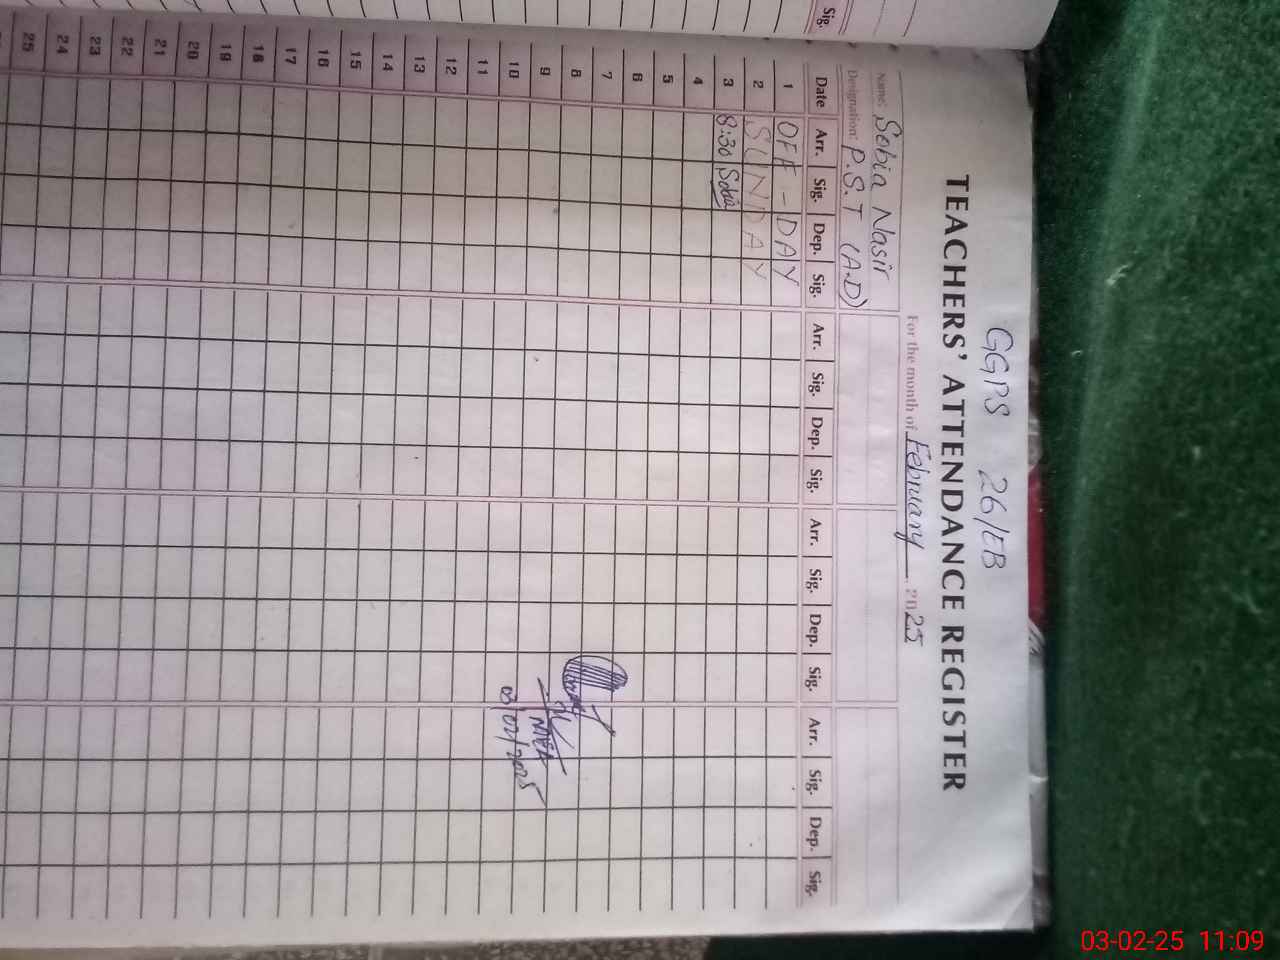 GGPS 26/EB
TEACHERS' ATTENDANCE REGISTER
For the month of February 2025
Name: Sobia Nasir
Designation: P.S.T (A.D)
Date Arr. Sig. Dep. Sig. Arr. Sig. Dep. Sig. Arr. Sig. Dep. Sig. Arr. Sig. Dep. Sig.
1 OFF-DAY
2 SUNDAY
3 8:30 Sobia
4
5
6
7
8
9
10 03/02/2025
11
12
13
14
15
16
17
18
19
20
21
22
23
24
25
Sig.
03-02-25 11:09